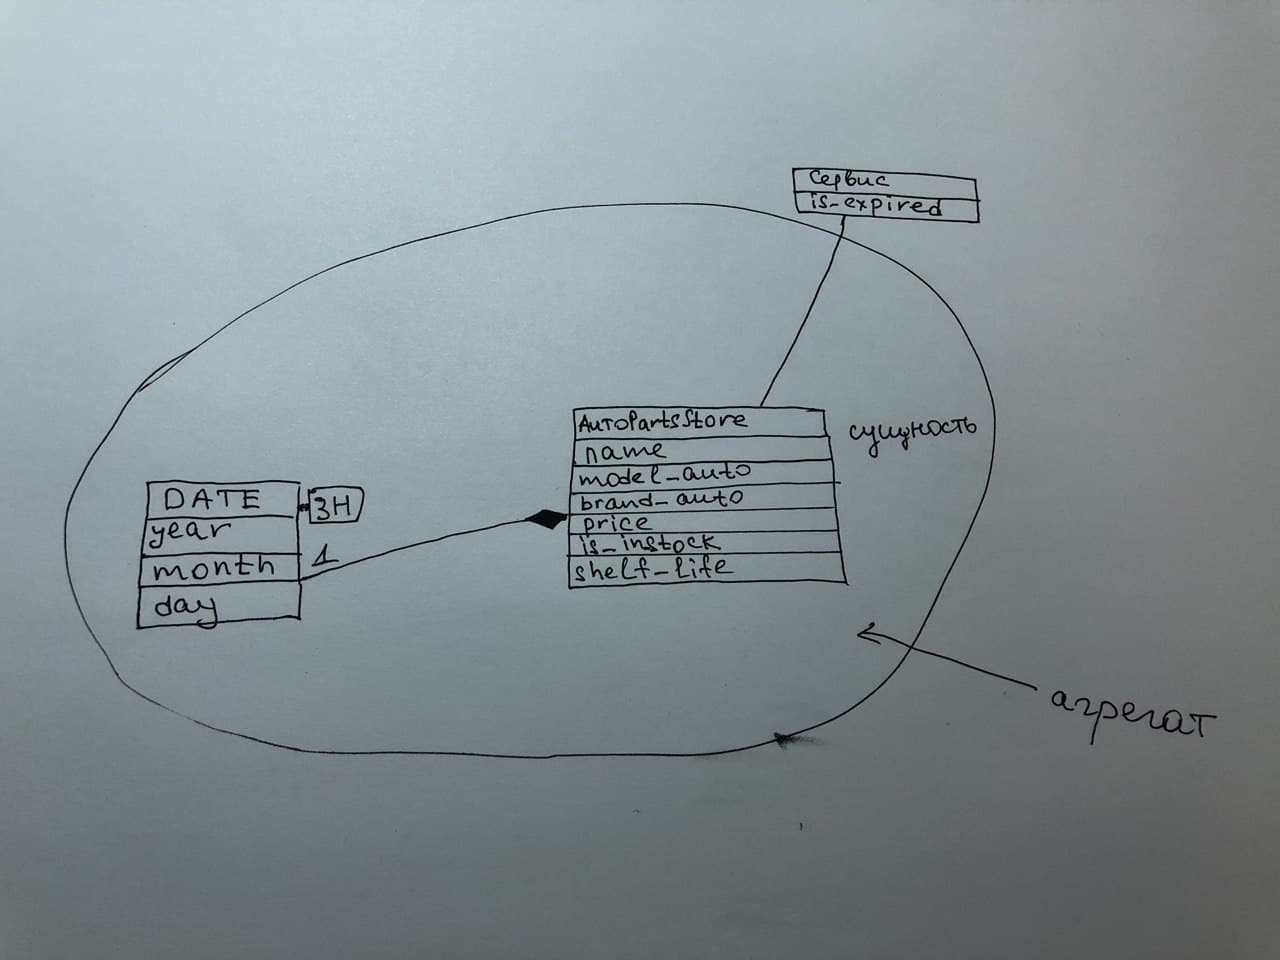 Сервис
is-expired
AutoPartsStore
name
model-auto
brand-auto
price
is-instock
shelf-life
сущность
DATE
year
month
day
ЗН
1
агрегат